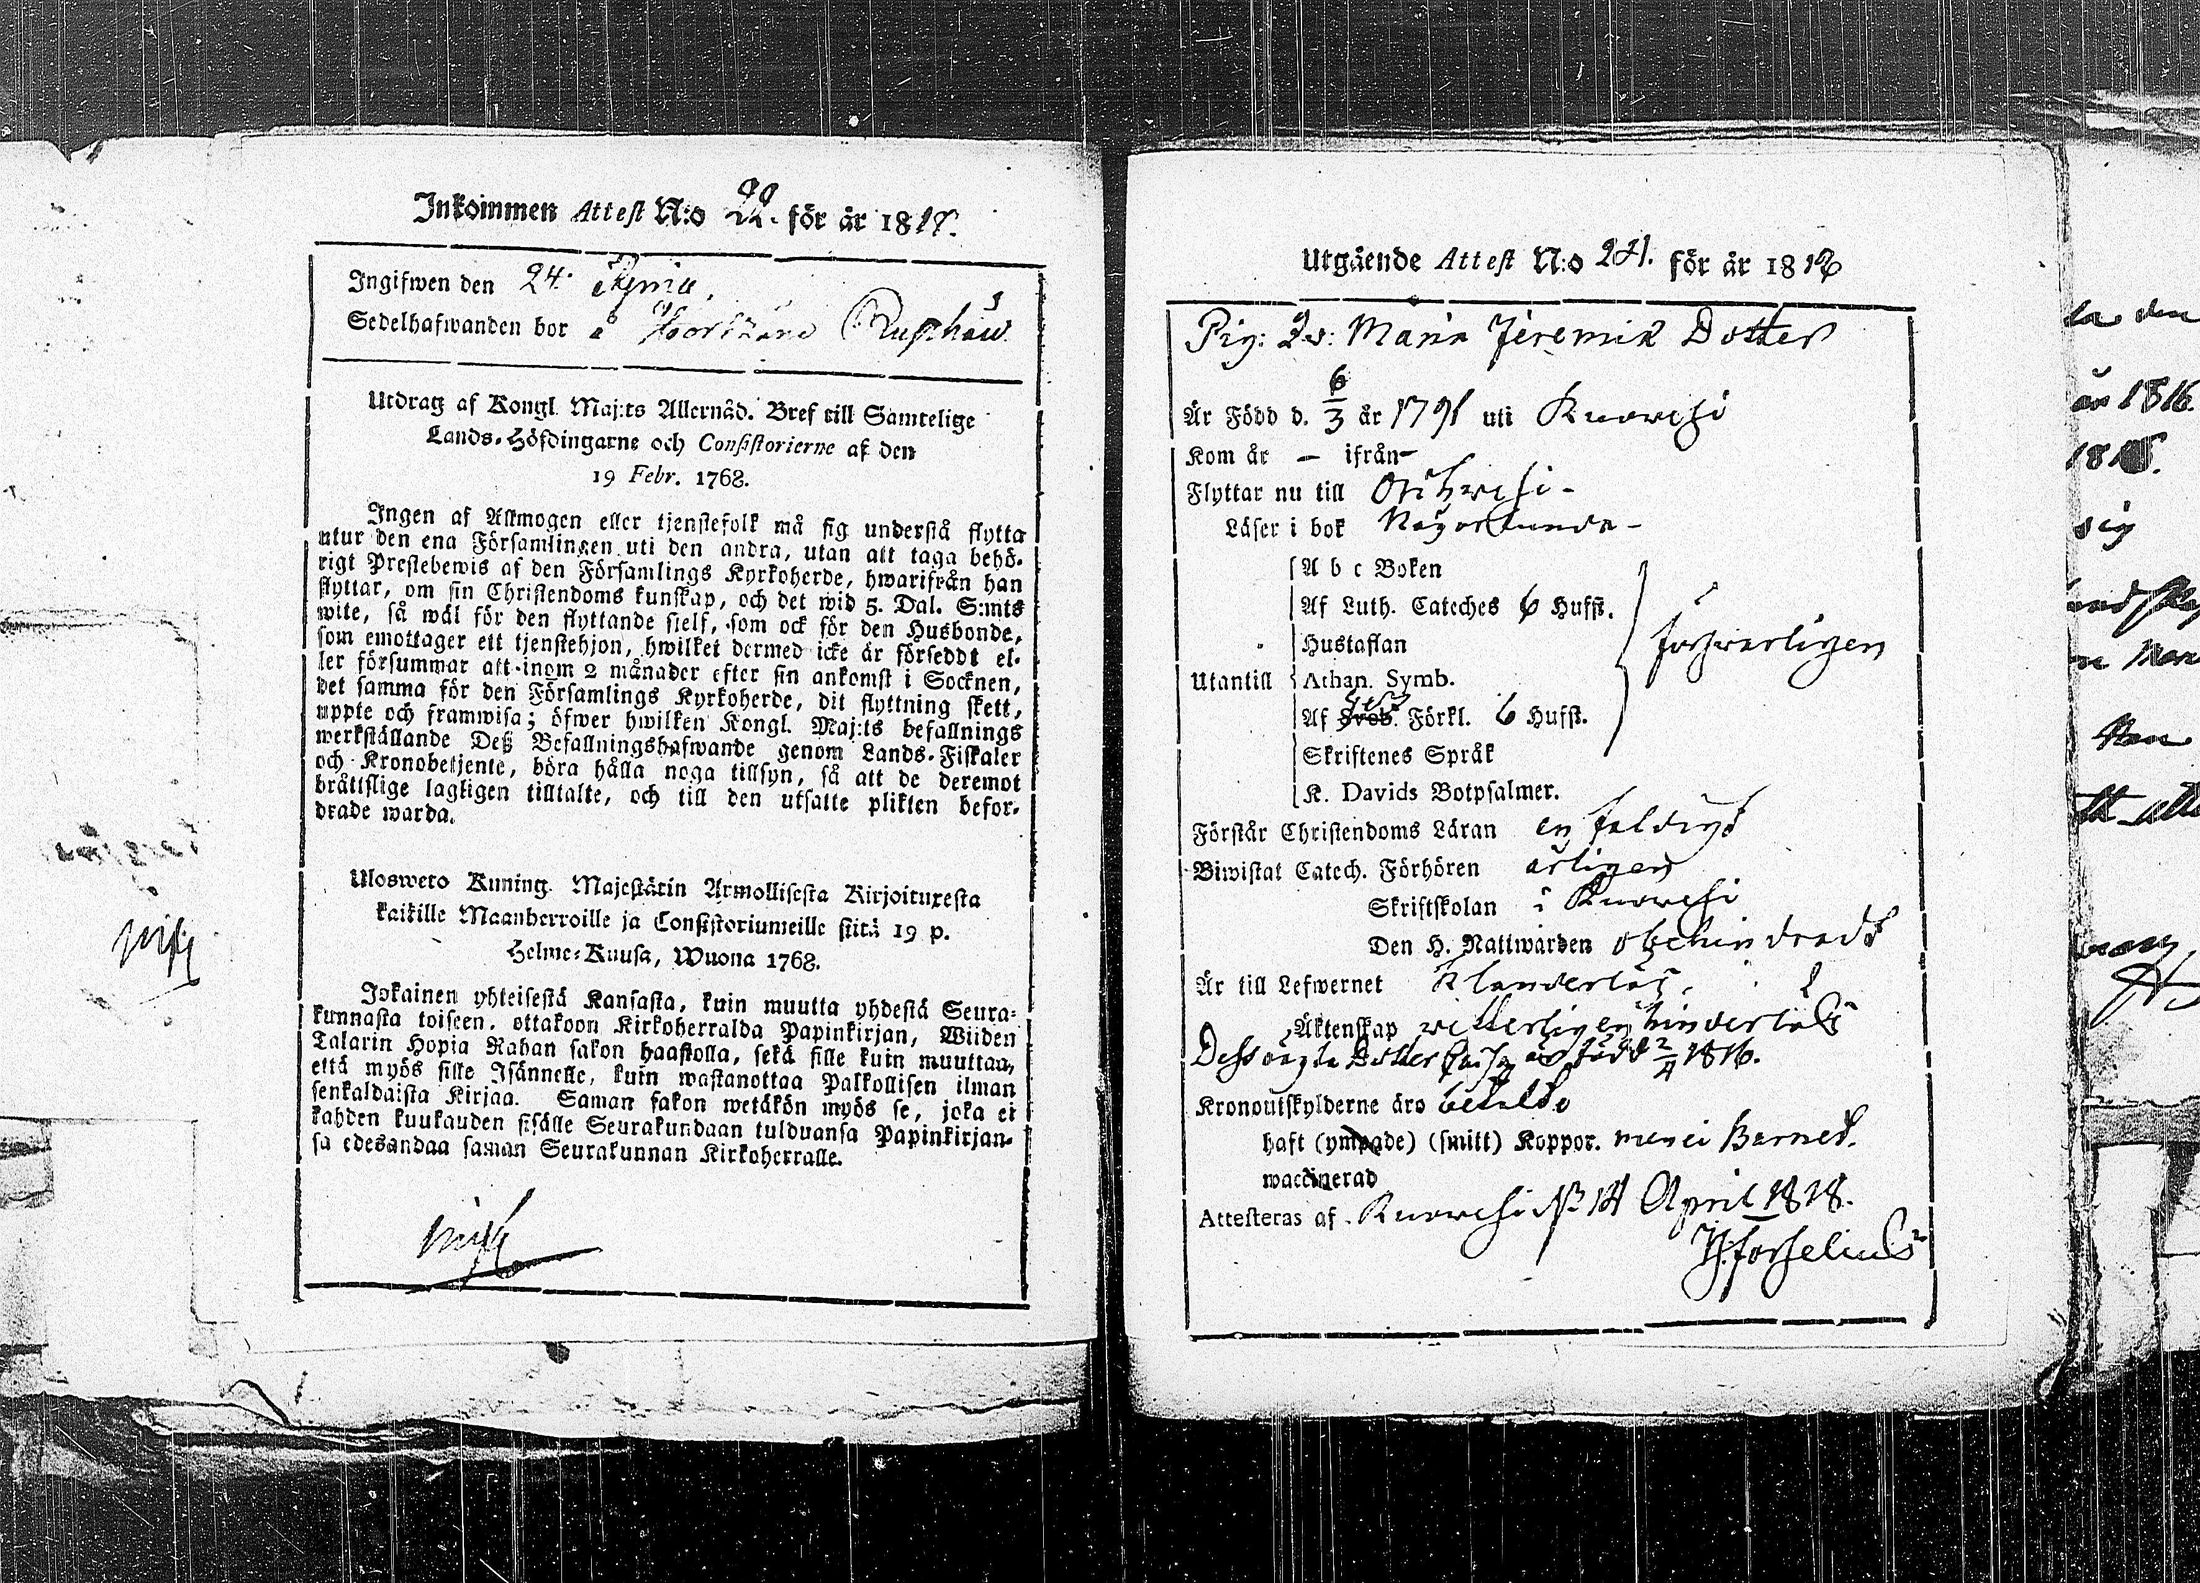 Inkommen Attest N:o 22. för år 1818.
Ingifwen den 24.
Sedelhafwanden bor å
Utdrag af Kongl. Maj:ts Allernåd. Bref till Samtelige
Lands-Höfdingarne och Consistorierne af den
19 Febr. 1768.
Ingen af Allmogen eller tjenstefolk må sig understå flytta
utur den ena Församlingen uti den andra, utan att taga behö-
rigt Prestebewis af den Församlings Kyrkoherde, hwarifrån han
flyttar, om sin Christendoms kunskap, och det wid 5. Dal. S:mts
wite, så wäl för den flyttande sielf, som ock för den Husbonde,
som emottager ett tjenstehjon, hwilket dermed icke är försedt el-
ler försummar att inom 2 månader efter sin ankomst i Socknen,
det samma för den Församlings Kyrkoherde, dit flyttning skett,
uppte och framwisa; öfwer hwilken Kongl. Maj:ts befallnings
werkställande Deß Befallningshafwande genom Lands-Fiskaler
och Kronobetjente, böra hålla noga tillsyn, så att de deremot
bråttslige lagligen tilltalte, och till den utsatte plikten befor-
drade warda.
Ulosweto Kuning. Majestätin Armollisesta Kirjoituxesta
kaikille Maanherroille ja Consistoriumeille siitä 19 p.
Helme-Kuusa, Wuona 1768.
Jokainen yhteisestä Kansasta, kuin muutta yhdestä Seura-
kunnasta toiseen, ottakoon Kirkoherralda Papinkirjan, Wiiden
Talarin Hopia Rahan sakon haastolla, sekä sille kuin muuttaa,
että myös sille Isännelle, kuin wastanottaa Palkollisen ilman
senkaldaista Kirjaa. Saman sakon wetäkön myös se, joka ei
kahden kuukauden sisälle Seurakundaan tulduansa Papinkirjan-
sa edesandaa saman Seurakunnan Kirkoherralle.
Utgående Attest N:o 241. för år 1818
Pig: Maria Jeremiæ Dotter
Är Född d. 6/3 år 1791 uti Kuorehsi
Kom år — ifrån —
Flyttar nu till Orihwesi -
Läser i bok Någorlunda -
A b c Boken
Af Luth. Cateches 6 Hufst.
Hustaflan
Utantill Athan. Symb.
Af Sveb. Förkl. 6 Hufst.
Skriftenes Språk
K. Davids Botpsalmer.
försvarligen
Förstår Christendoms Läran enfaldigt
Biwistat Catech. Förhören årligen
Skriftskolan i Kuorehsi
Den H. Nattwarden obehindradt
Är till Lefwernet Klanderlös.
Äktenskap vetterligen hinderlös
Dess oägta Dotter är född 2/4 1816.
Kronoutskylderne äro betalde
haft (ympade) (smitt) Koppor. men ei Barnet.
waccinerad
Attesteras af Kuorehsi 14 April 1818.
H: Forselius